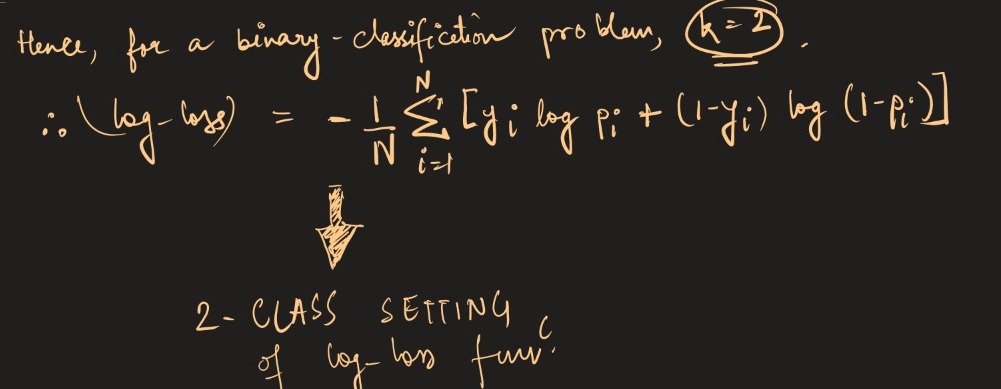 Hence, for a binary-classification problem, k = 2.
∴ (log-loss) = - 1/N Σ_{i=1}^{N} [y_i log p_i + (1-y_i) log (1-p_i)]
2-CLASS SETTING
of log-loss funcⁿ.